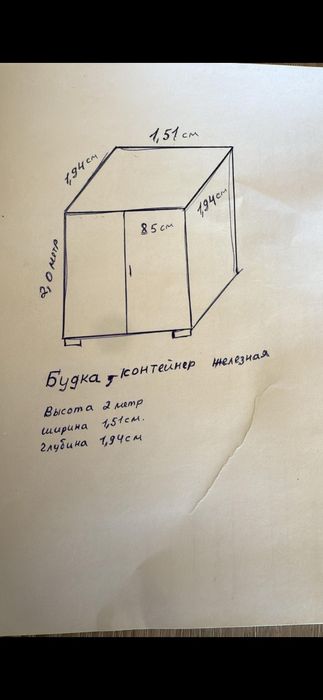 1,51 см
1,94 см
1,94 см
85 см
2,0 метр
Будка, контейнер железная
Высота 2 метр
ширина 1,51 см.
глубина 1,94 см